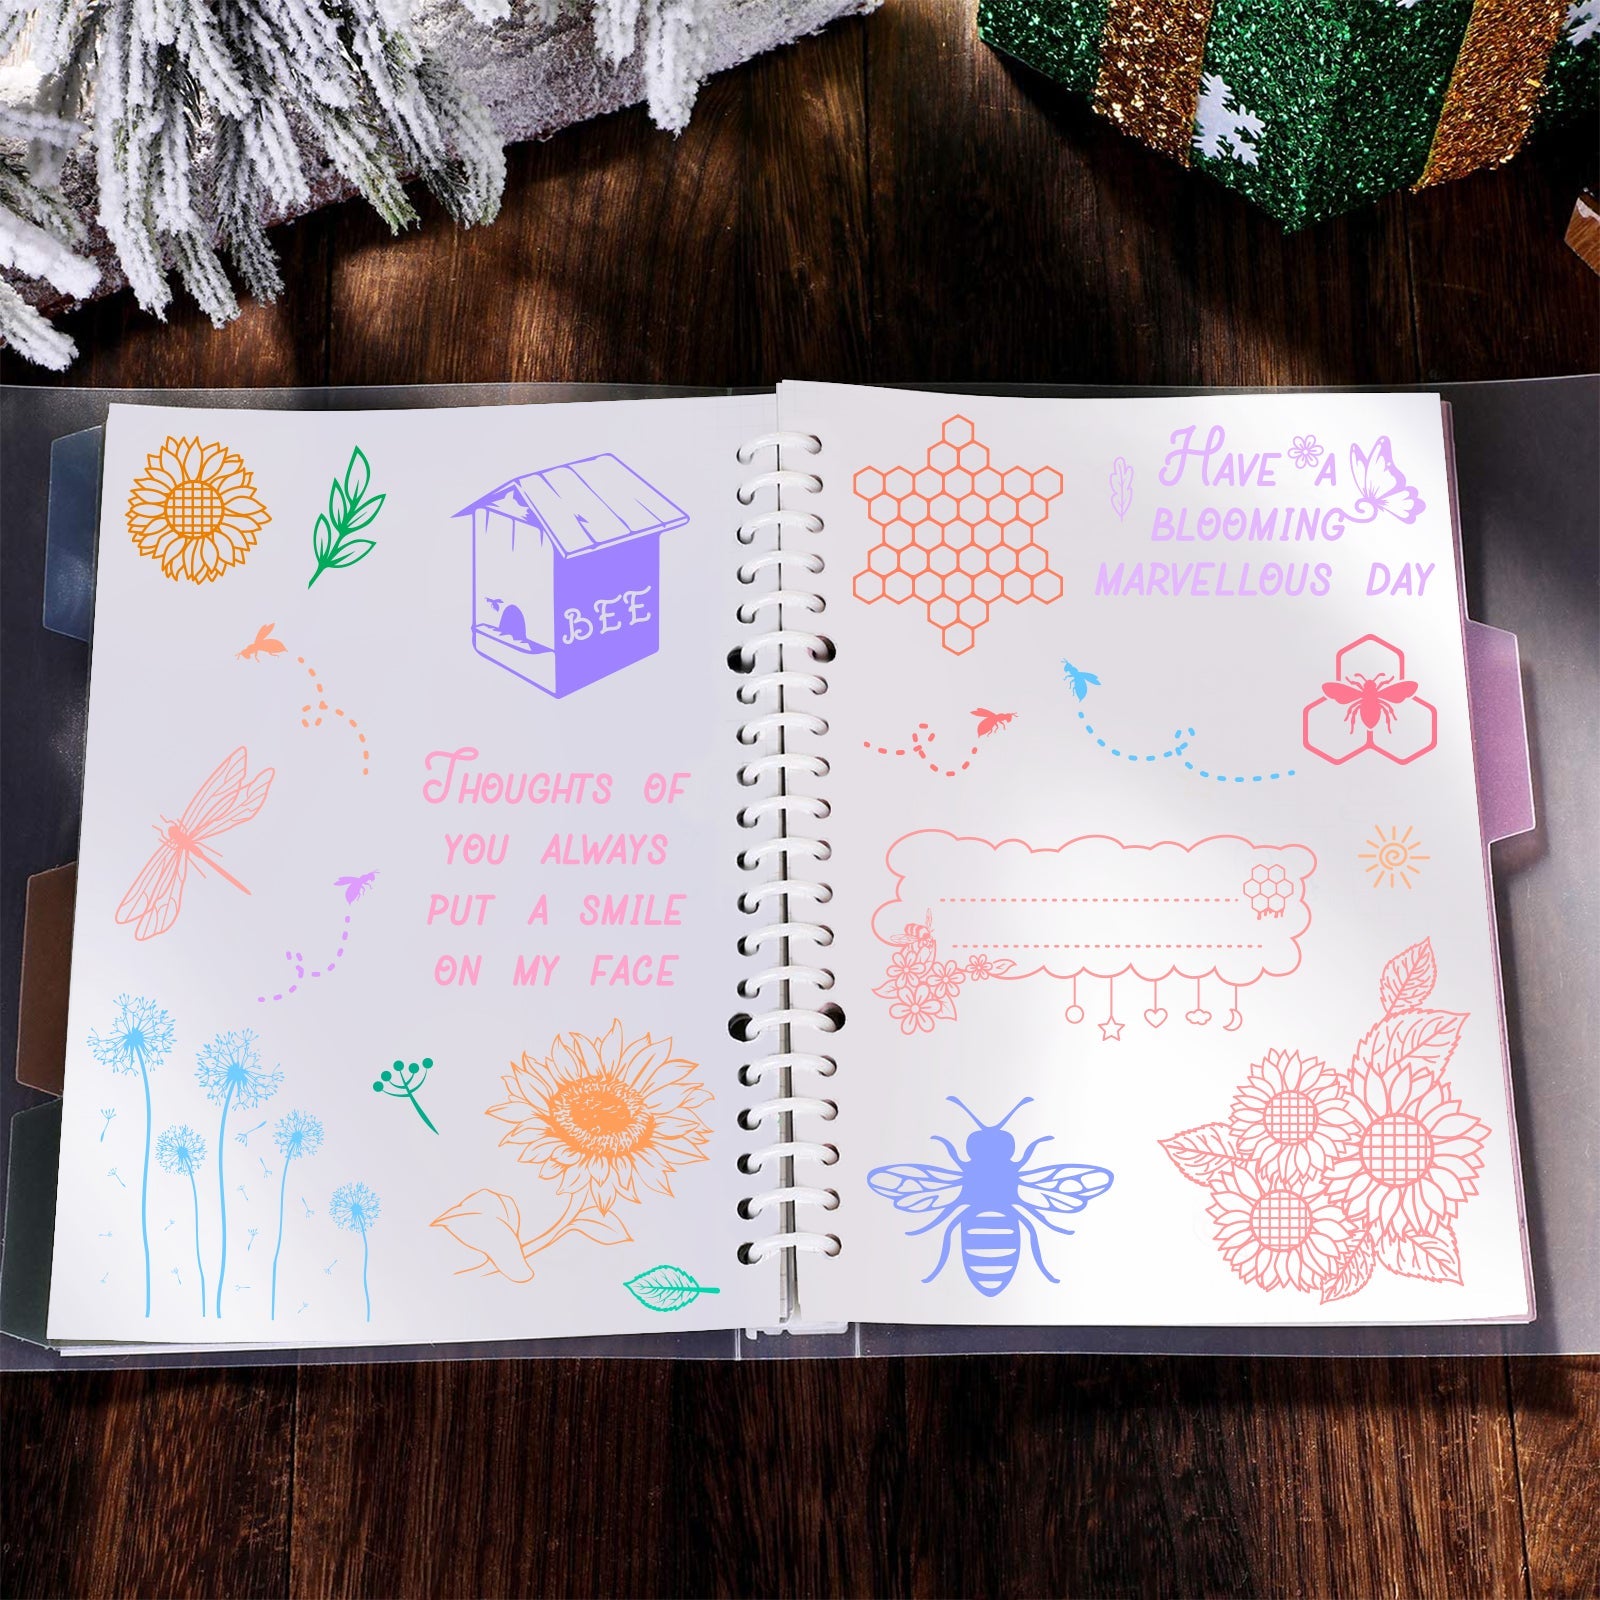 BEE
THOUGHTS OF
YOU ALWAYS
PUT A SMILE
ON MY FACE
HAVE A
BLOOMING
MARVELLOUS DAY